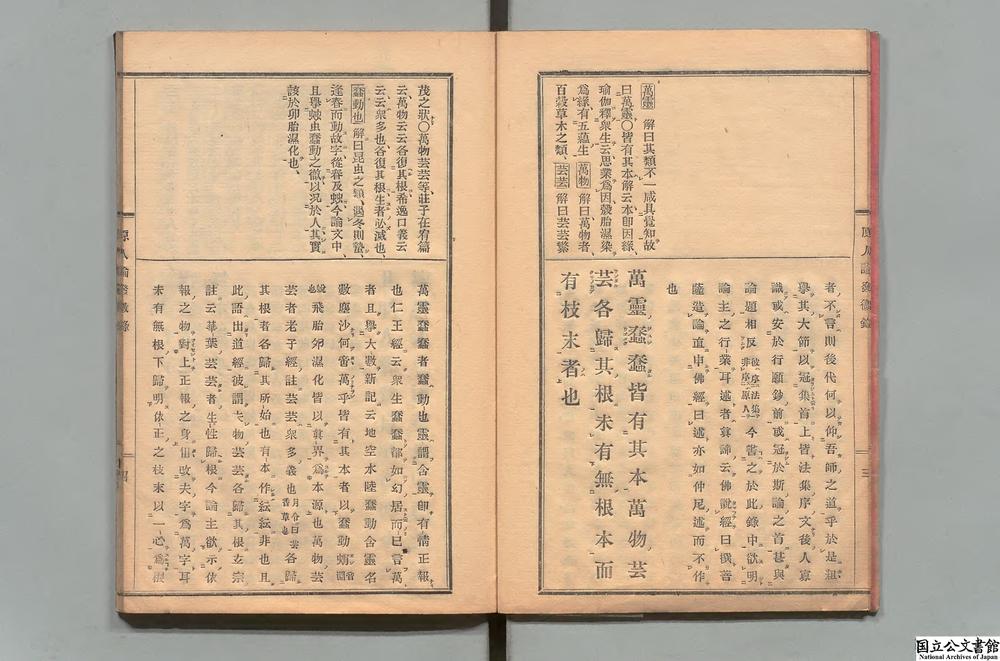 萬靈 解曰其類不一咸具覺知故
曰萬靈〇皆有其本解云本卽因緣
瑜伽釋衆生云思業爲因㲉胎濕染
爲緣有五蘊生 萬物 解曰萬物者
百穀草木之類 芸芸 解曰芸芸繁
者不言則後代何以仰吾師之道乎於是粗
擧其大節以冠集首上皆法集序文後人寡
識或安於行願鈔前或冠於斯論之首甚與
論題相反彼序法集非序原人今書之於此錄中欲明
論主之行業耳述者眞諦云佛說經曰撰菩
薩造論直申佛經曰述亦如仲尼述而不作
也
萬靈蠢蠢皆有其本萬物芸
芸各歸其根未有無根本而
有枝末者也
原人論發微錄
三
茂之狀〇萬物芸芸等莊子在宥篇
云萬物云云各復其根希逸口義云
云云衆多也各復其根生者必滅也
蠢動也 解曰昆虫之類遇冬則蟄
逢春而動故字從春及䖵今論文中
且擧䖵虫蠢動之微以况於人其實
該於卵胎濕化也
萬靈蠢蠢者蠢動也靈謂含靈卽有情正報
也仁王經云衆生蠢蠢都如幻居而已言萬
者且擧大數新記云地空水陸蠢動含靈名
數塵沙何啻萬乎皆有其本者以蠢動蝡
飛胎卵濕化皆以眞界爲本源也萬物芸
芸者老子經註芸芸衆多義也月令曰芸香草也各歸
其根者各歸其所始也有本作紜紜非也且
此語出道經彼謂夫物芸芸各歸其根玄宗
註云華葉芸芸者生性歸根今論主欲示依
報之物對上正報之身但改夫字爲萬字耳
未有無根下歸明依正之枝末以一心爲根
原人論發微錄
四
国立公文書館
National Archives of Japan